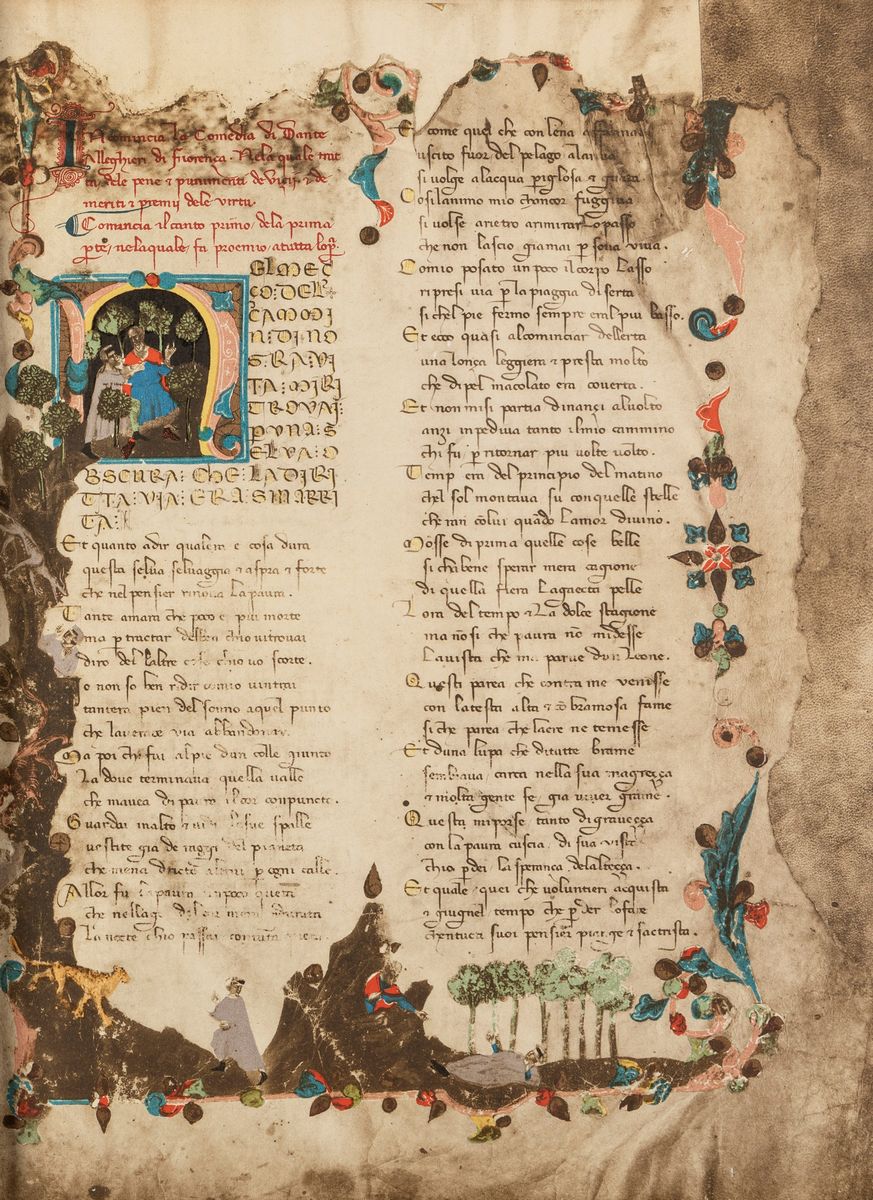 Incomincia la Comedia di Dante
Alleghieri di Fiorença. Nela quale trat
ta dele pene τ punimenti de vicii τ de
meriti τ premii dele virtu.
Comincia il canto primo dela prima
pte nelaquale fa proemio atutta lopa.
EL MEÇ
ÇO·DEL·
CAMMI
N·DI·NO
STRA·VI
TA·MI·RI
TROVAI·
P·UNA·S
ELVA·O
BSCURA·CHE·LADIRI
TTA·VIA·ERA·SMARRI
TA·
Et quanto adir qualera e cosa dura
questa selva selvaggia τ aspra τ forte
che nel pensier rinova lapaura.
Tante amara che poco e piu morte
ma p tractar del chio vitrovai
diro del laltre chio vo scorte.
Io non so ben ridir comio vintrai
tantera pien del sonno aquel punto
che laverace via abbandonai.
Ma poi chi fui alpie dun colle giunto
La dove terminava quella valle
che mavea di paura il cor conpuncto.
Guardai inalto le sue spalle
vestite gia de raggi del pianeta
che mena dricto altrui p ogni calle.
Allor fu la paura unpoco queta
che nellago del cor
La nocte chio passai
Et come quei che con lena affannata
uscito fuor del pelago alariva
si volge alacqua piglosa τ guata
Cosi lanimo mio chancor fuggiva
si volse arietro arimirar lo passo
che non lascio giamai psona viva.
Comio posato un poco il corpo lasso
ripresi via p la piaggia diserta
si chel pie fermo sempre eral piu basso.
Et ecco quasi alcominciar dellerta
una lonça leggiera τ presta molto
che di pel macolato era coverta.
Et non misi partia dinançi alvolto
anzi inpediva tanto ilmio cammino
chi fu p ritornar piu volte volto.
Temp era del principio del matino
chel sol montava su conquelle stelle
cheran colui quado lamor divino.
Mosse di prima quelle cose belle
si cha bene sperar mera cagione
di quella fiera lagaecta pelle
Lora del tempo τ la dolce stagione
ma no si che paura no midesse
La vista che ma parve dun leone.
Questi parea che contra me venisse
con latesta alta τ co bramosa fame
si che parea che laere ne temesse
Et duna lupa che ditutte brame
sembrava carca nella sua magreçça
τ molta gente fe gia viver grame.
Questa miporse tanto di graveçça
con la paura cuscia di sua vista
chio pdei la sperança delalteçça.
Et quale quei che voluntieri acquista
τ giugnel tempo che pder loface
chentucti suoi pensier piange τ sactrista.